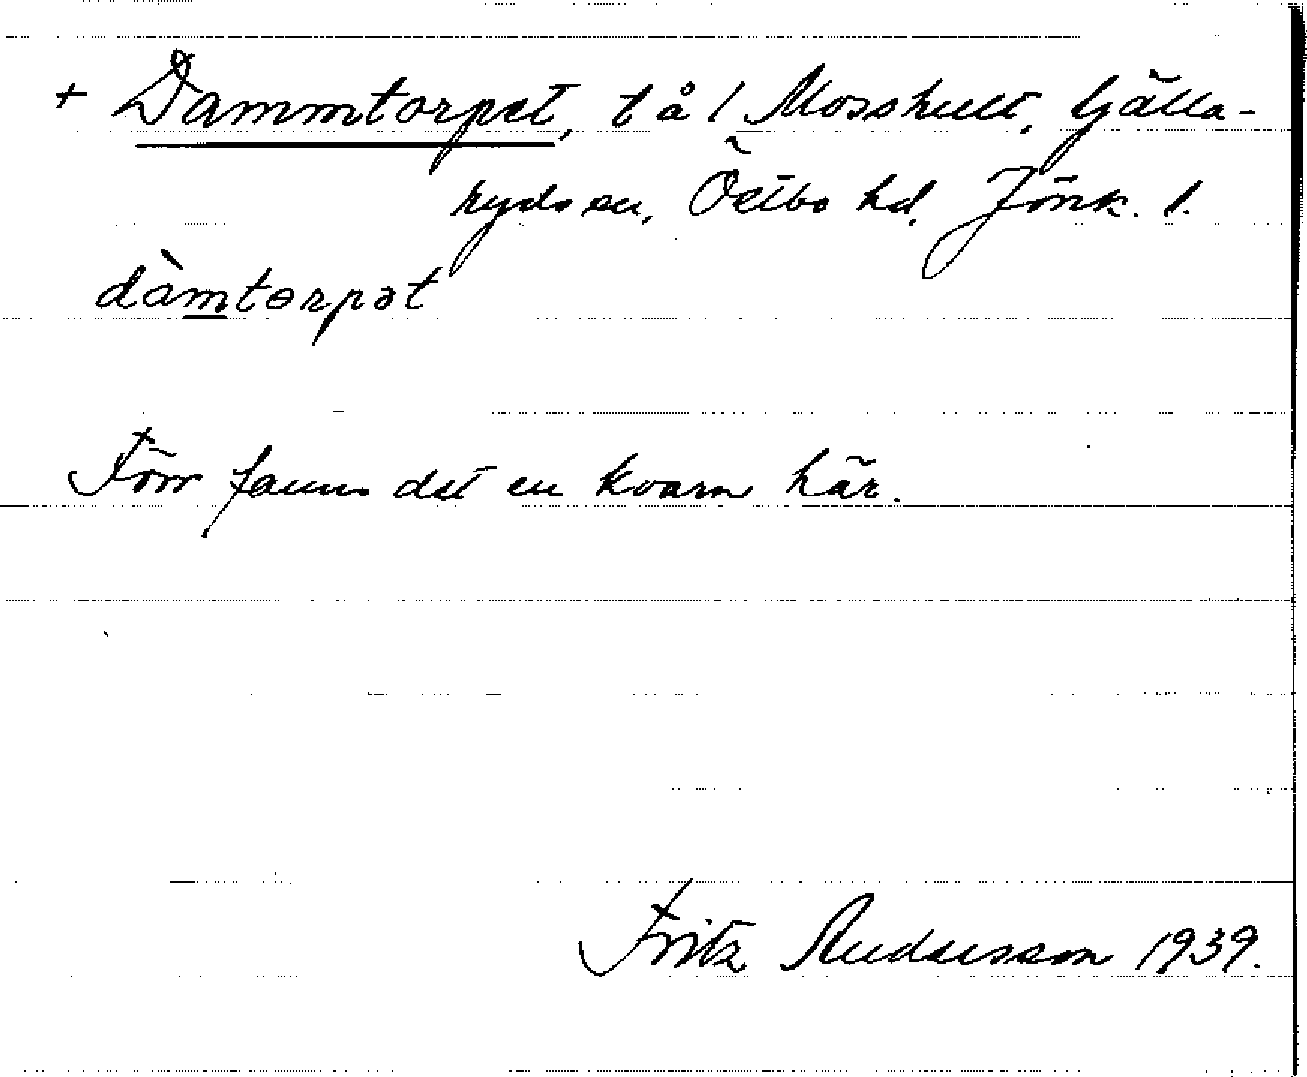 + Dammtorpet, t å / Mosshult, Gälla-
ryds sn, Östbo hd, Jönk. l.
dàmtorpət
Förr fanns det en kvarn här.
Fritz Andersson 1939.